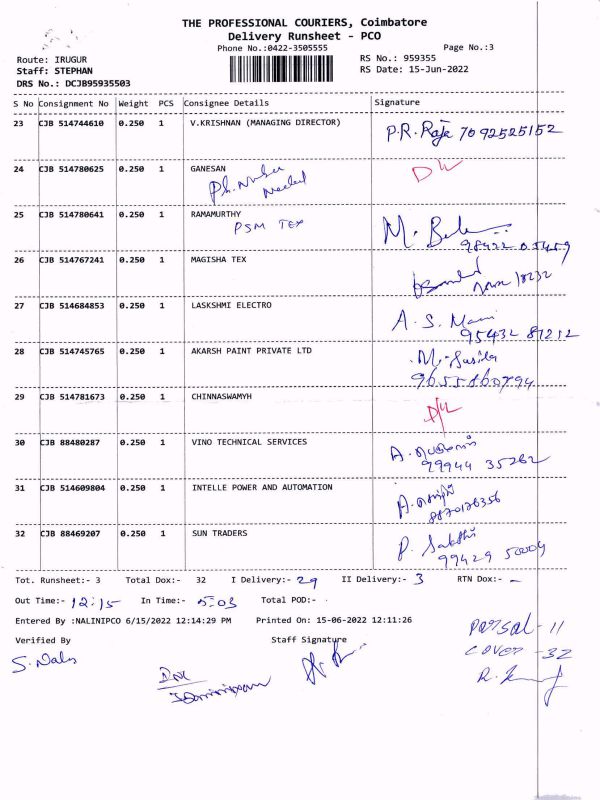 THE PROFESSIONAL COURIERS, Coimbatore
Delivery Runsheet - PCO
Phone No.:0422-3505555 Page No.:3
Route: IRUGUR RS No.: 959355
Staff: STEPHAN RS Date: 15-Jun-2022
DRS No.: DCJB95935503
S No Consignment No Weight PCS Consignee Details Signature
23 CJB 514744610 0.250 1 V.KRISHNAN (MANAGING DIRECTOR) P.R. Raja 7092525152
24 CJB 514780625 0.250 1 GANESAN D/L
Ph. Number
Needed
25 CJB 514780641 0.250 1 RAMAMURTHY
PSM TEX M.
98422 05459
26 CJB 514767241 0.250 1 MAGISHA TEX
18232
27 CJB 514684853 0.250 1 LASKSHMI ELECTRO A. S. Mani
95432 87212
28 CJB 514745765 0.250 1 AKARSH PAINT PRIVATE LTD M. Susila
9655860794
29 CJB 514781673 1 CHINNASWAMYH D/L
30 CJB 88480287 0.250 1 VINO TECHNICAL SERVICES A.
99944 35262
31 CJB 514609804 0.250 1 INTELLE POWER AND AUTOMATION A.
8870176356
32 CJB 88469207 0.250 1 SUN TRADERS P. Sakthi
99429 50004
Tot. Runsheet:- 3 Total Dox:- 32 I Delivery:- 29 II Delivery:- 3 RTN Dox:- -
Out Time:- 12:15 In Time:- 5:03 Total POD:-
Entered By :NALINIPCO 6/15/2022 12:14:29 PM Printed On: 15-06-2022 12:11:26
Verified By Staff Signature
Parsal - 11
Cover - 32